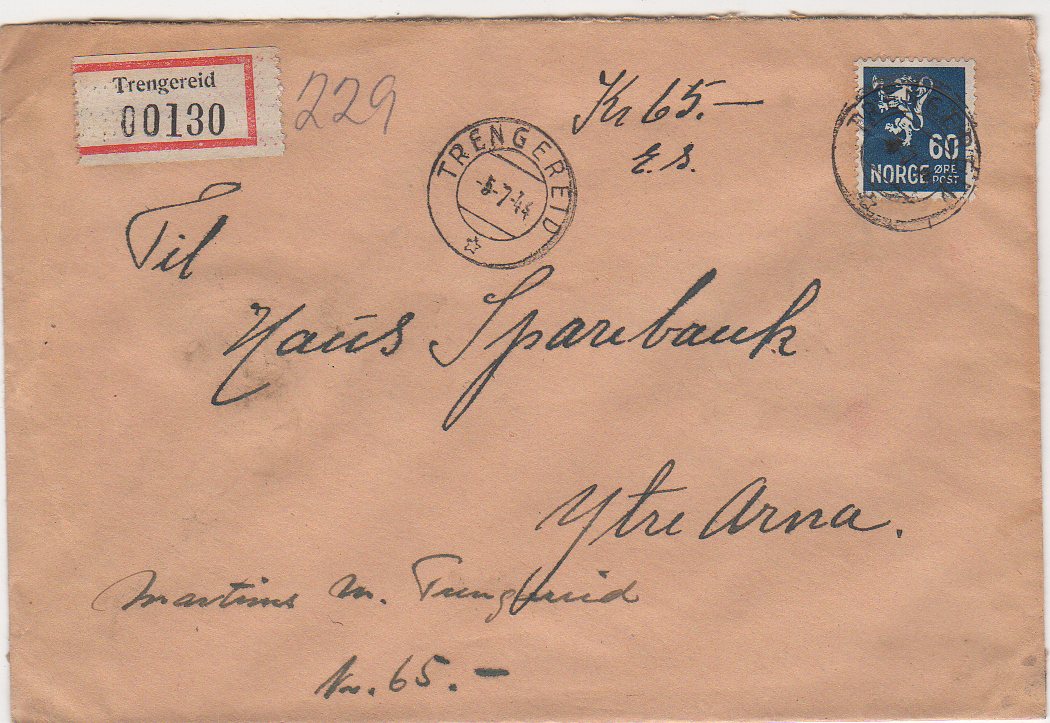 Trengereid
00130
229
Kr 65.—
E.S.
TRENGEREID
-5-7-44
60
NORGE ØRE
POST
Til
Haus Sparebank
Ytre Arna.
M. Trengereid
Kr. 65.—